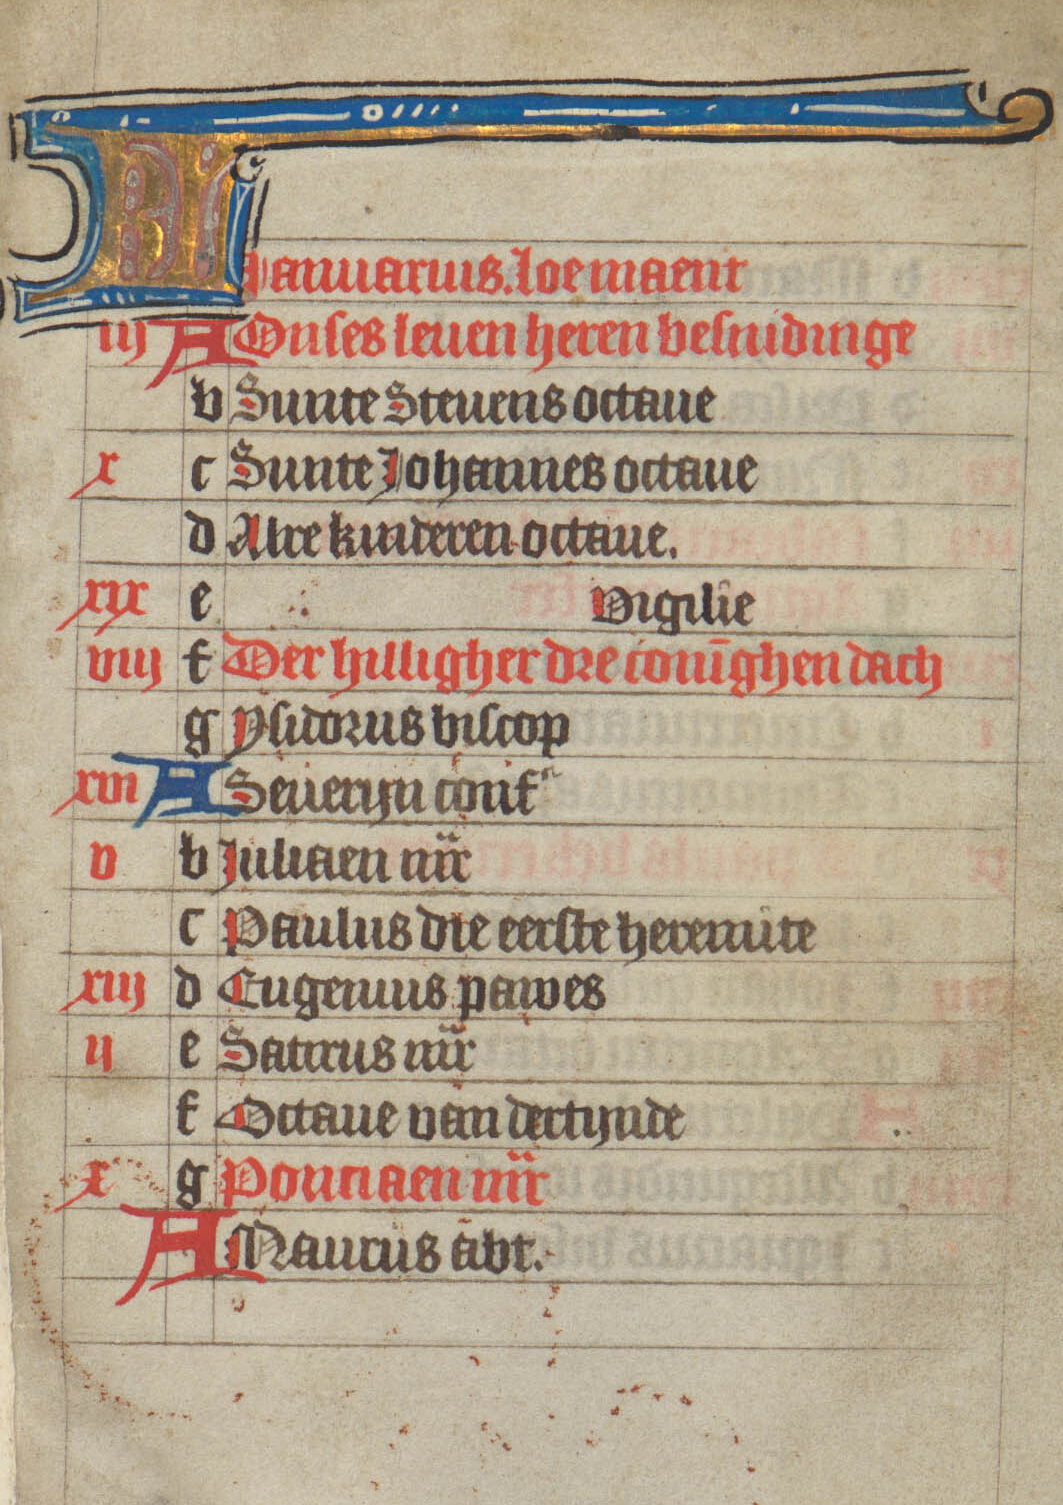 KL
Januarius. Loemaent
iij A Onses leuen heren besnidinge
b Sunte Steuens octaue
x c Sunte Johannes octaue
d Alre kinderen octaue.
xix e Vigilie
viij f Der hilligher dre conīghen dach
g Ysidorus biscop
xvi A Seueryn conf
v b Juliaen mr̄
c Paulus die eerste heremite
xiij d Eugenius pawes
ij e Satirus mr̄
f Octaue van dertynde
x g Ponciaen mr̄
A Maurus abt.